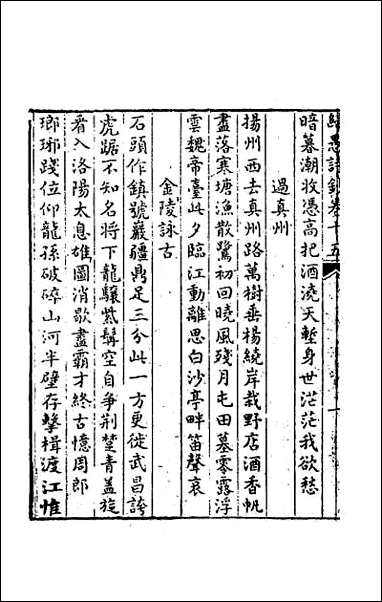 歸愚詩鈔卷十五
暗暮潮收憑高把酒澆天塹身世茫茫我欲愁
過真州
揚州西去真州路萬樹垂楊繞岸栽野店酒香帆
盡落寒塘漁散鷺初回曉風殘月屯田墓零露浮
雲魏帝臺此夕臨江動離思白沙亭畔笛聲哀
金陵詠古
石頭作鎮號巖疆鼎足三分此一方更徙武昌誇
虎踞不知名將下龍驤紫髯空自爭荊楚青蓋旋
看入洛陽太息雄圖消歇盡霸才終古憶周郎
瑯琊踐位仰龍孫破碎山河半壁存擊楫渡江惟